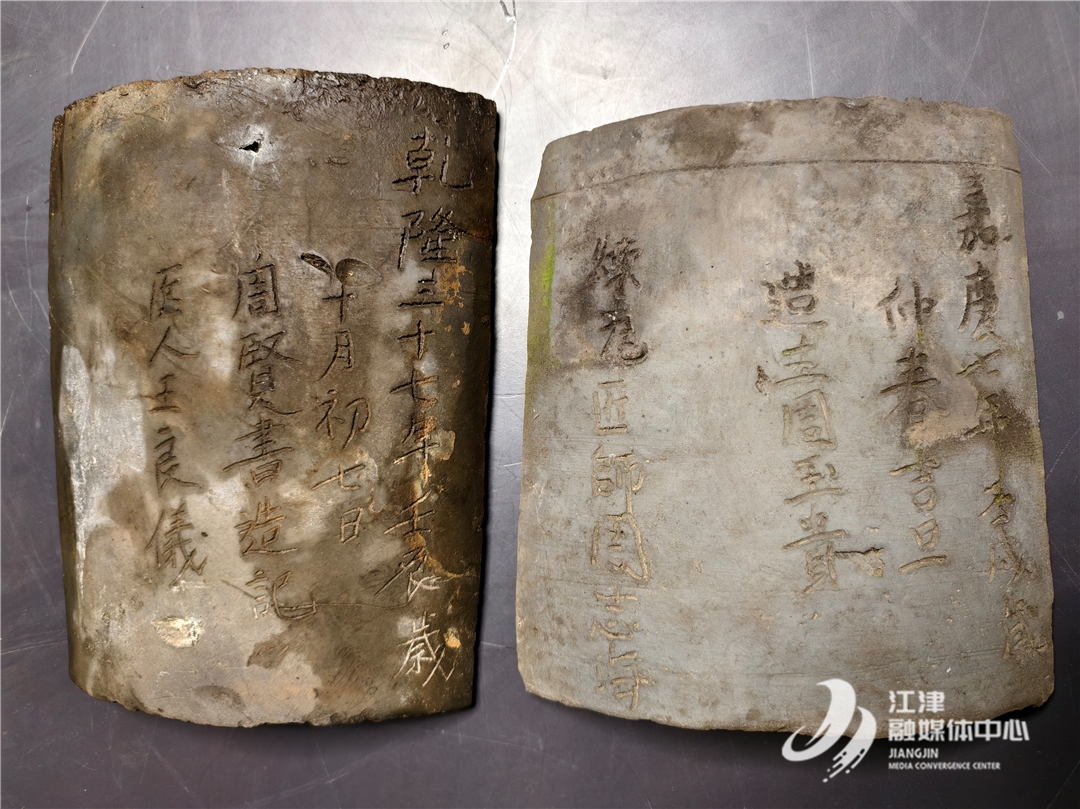 乾隆三十七年壬辰歲
十月初七日
周賢書造記
匠人王良儀
嘉慶七年
仲春吉旦
造主周玉貴
匠師周志
江津
融媒体中心
JIANGJIN
MEDIA CONVERGENCE CENTER